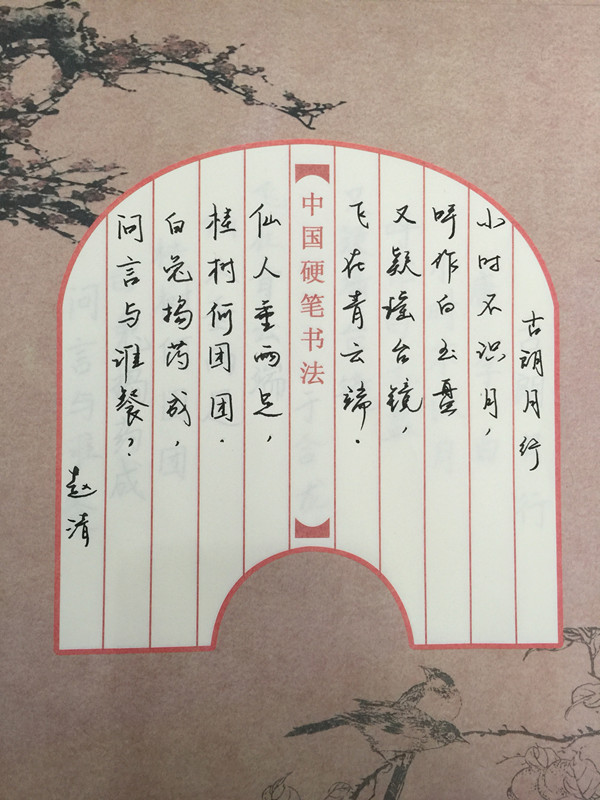 古朗月行
小时不识月，
呼作白玉盘
又疑瑶台镜，
飞在青云端.
中国硬笔书法
仙人垂两足，
桂树何团团.
白兔捣药成，
问言与谁餐？
赵清